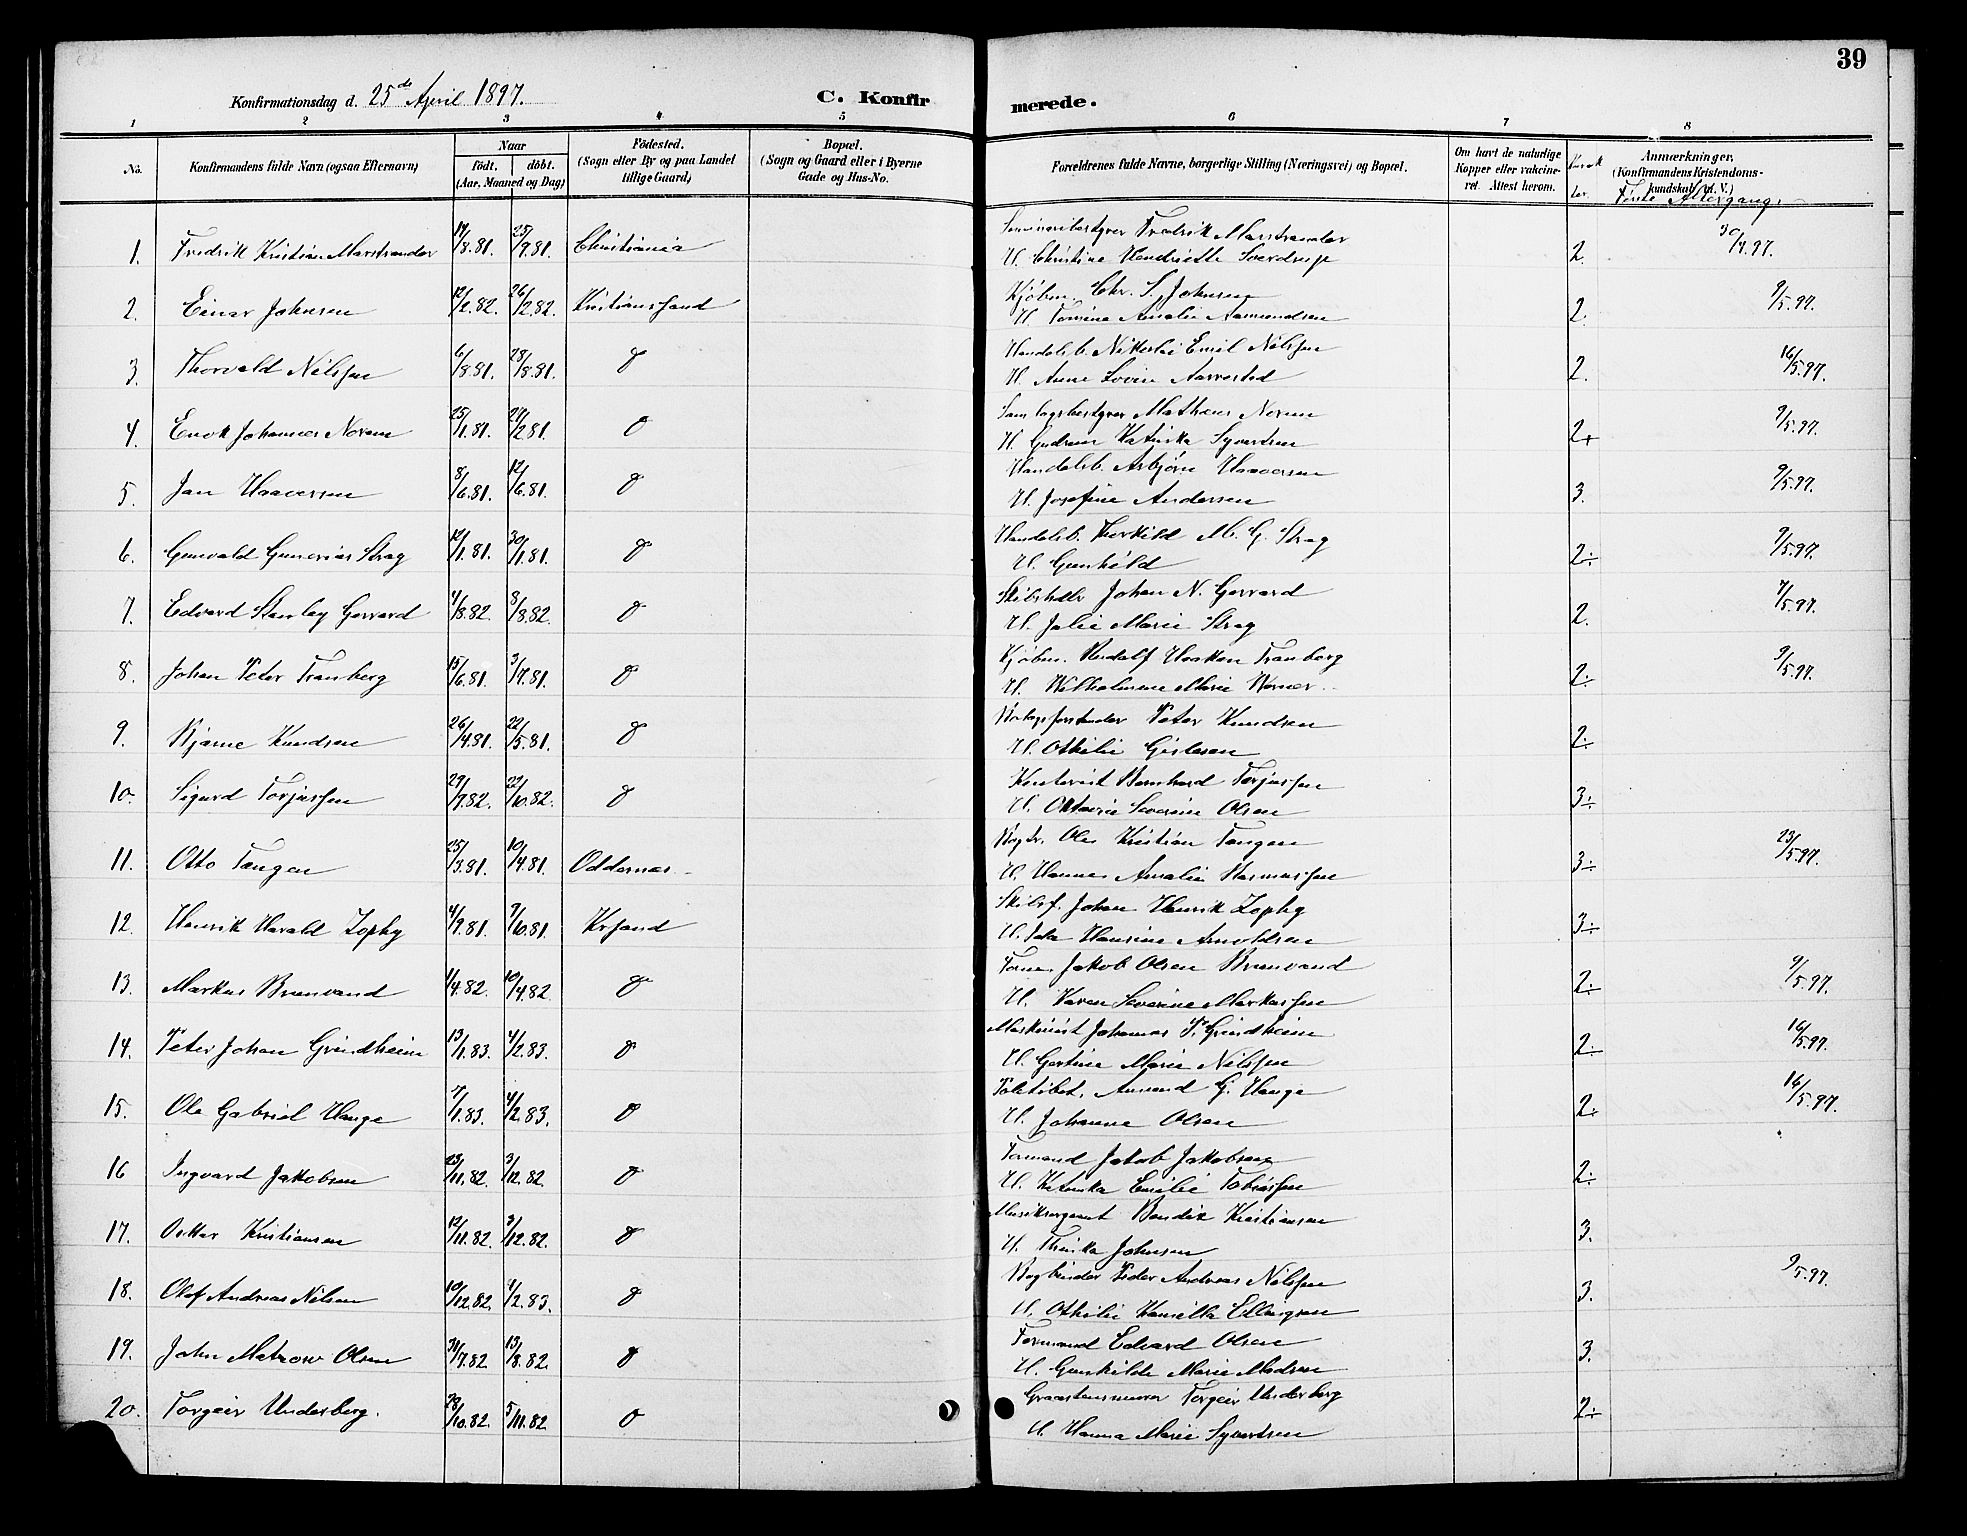 39
Konfirmationsdag d. 25de April 1897. C. Konfir merede.
1 2 3 4 5 6 7 8
No. Konfirmandens fulde Navn (ogsaa Efternavn) Naar födt, döbt. (Aar, Maaned og Dag) Födested. (Sogn eller By og paa Landet tillige Gaard) Bopæl. (Sogn og Gaard eller i Byerne Gade og Hus-No. Forældrenes fulde Navne, borgerlige Stilling (Næringsvei) og Bopæl. Om havt de naturlige Kopper eller vakcineret. Attest herom. Karakter. Anmærkninger. (Konfirmandens Kristendomskundskab m. V.) Første Altergang
1. Fredrik Kristian Marstrander 14/8.81. 25/9.81. Christiania Fredrik Marstrander
H. Christine Henriette Sverdrup 2. 30/4.97.
2. Einar Johnsen 12/2.82. 26/2.82. Kristianssand Kjøbm. Chr. S. Johnsen
H. Tomine Amalie Aamundsen 2. 9/5.97.
3. Thorvald Nilssen 6/8.81. 28/8.81. Handelsb. Emil Nilssen
H. Anne 2. 16/5.97.
4. Enok Johannes Norum 25/1.81. 27/2.81. Samlagsbestyrer Mathæus Norum
H. Gudrun Katinka Syvertsen 2+ 9/5.97.
5. Jan Haaversen 8/6.81. 12/6.81. Handelsb. Asbjørn Haaversen
H. Josefine Andersen 3. 9/5.97.
6. Gunvald Gunerius Strag 12/1.81. 30/1.81. Handelsb. Therkild M. G. Strag
H. Gunhild 2.÷ 9/5.97.
7. Edvard Stanley Gerrard 4/8.82. 8/8.82. Johan N. Gerrard
H. Julie Marie Strag 2. 7/5.97.
8. Johan Peter Tranberg 15/6.81. 3/7.81. Kjøbm. Rudolf Haakon Tranberg
H. Wilhelmine Marie Werner 2.÷ 9/5.97.
9. Bjarne Knudsen 26/4.81. 22/5.81. Peter Knudsen
H. Othilie Gislesen 2.÷
10. Sigurd Torjussen 29/7.82. 22/10.82. Kontorist Bernhard Torjussen
H. Oktavie Severine Olsen 3.÷
11. Otto Tangen 25/3.81. 10/4.81. Oddernæs Bogtr. Ole Kristian Tangen
H. Hanne Amalie Rasmussen 3.÷ 23/5.97.
12. Henrik Harald Zophy 4/9.81. 9/10.81. Krsand Skibsf. Johan Henrik Zophy
H. Ida Hansine Arnoldsen 3.÷
13. Markus Brunvand 1/4.82. 10/4.82 Jakob Olsen Brunvand
H. Karen Severine Markussen 2.÷ 9/5.97.
14. Peter Johan Grindheim 13/1.83. 4/2.83. Maskinist Johannes P. Grindheim
H. Gertine Marie Nilssen 2.÷ 16/5.97.
15. Ole Gabriel Hauge 7/1.83. 4/2.83. Politibet. Amund G. Hauge
H. Johanne Olsen 2.÷ 16/5.97.
16 Ingvard Jakobsen 23/11.82. 3/12.82 Formand Jakob Jakobsen
H. Katinka Emilie Tobiassen 2.÷
17. Oskar Kristiansen 12/11.82. 3/12.82. Musiksergeant Bendix Kristiansen
H. Thrinka Johnsen 3.
18. Olaf Andreas Nilsen 10/12.82. 4/2.83. Bogbinder Peder Andreas Nilssen
H. Othilie Kamilla Ellingsen 3. 9/5.97.
19. John Matrow Olsen 31/7.82 13/8.82. Formand Edvard Olsen
H. Gunhilde Marie Madsen 3.
20. Torgeir Underberg. 28/10.82. 5/11.82 Graastensmurer Torgeir Underberg
H. Hanna Marie Syvertsen 2.÷